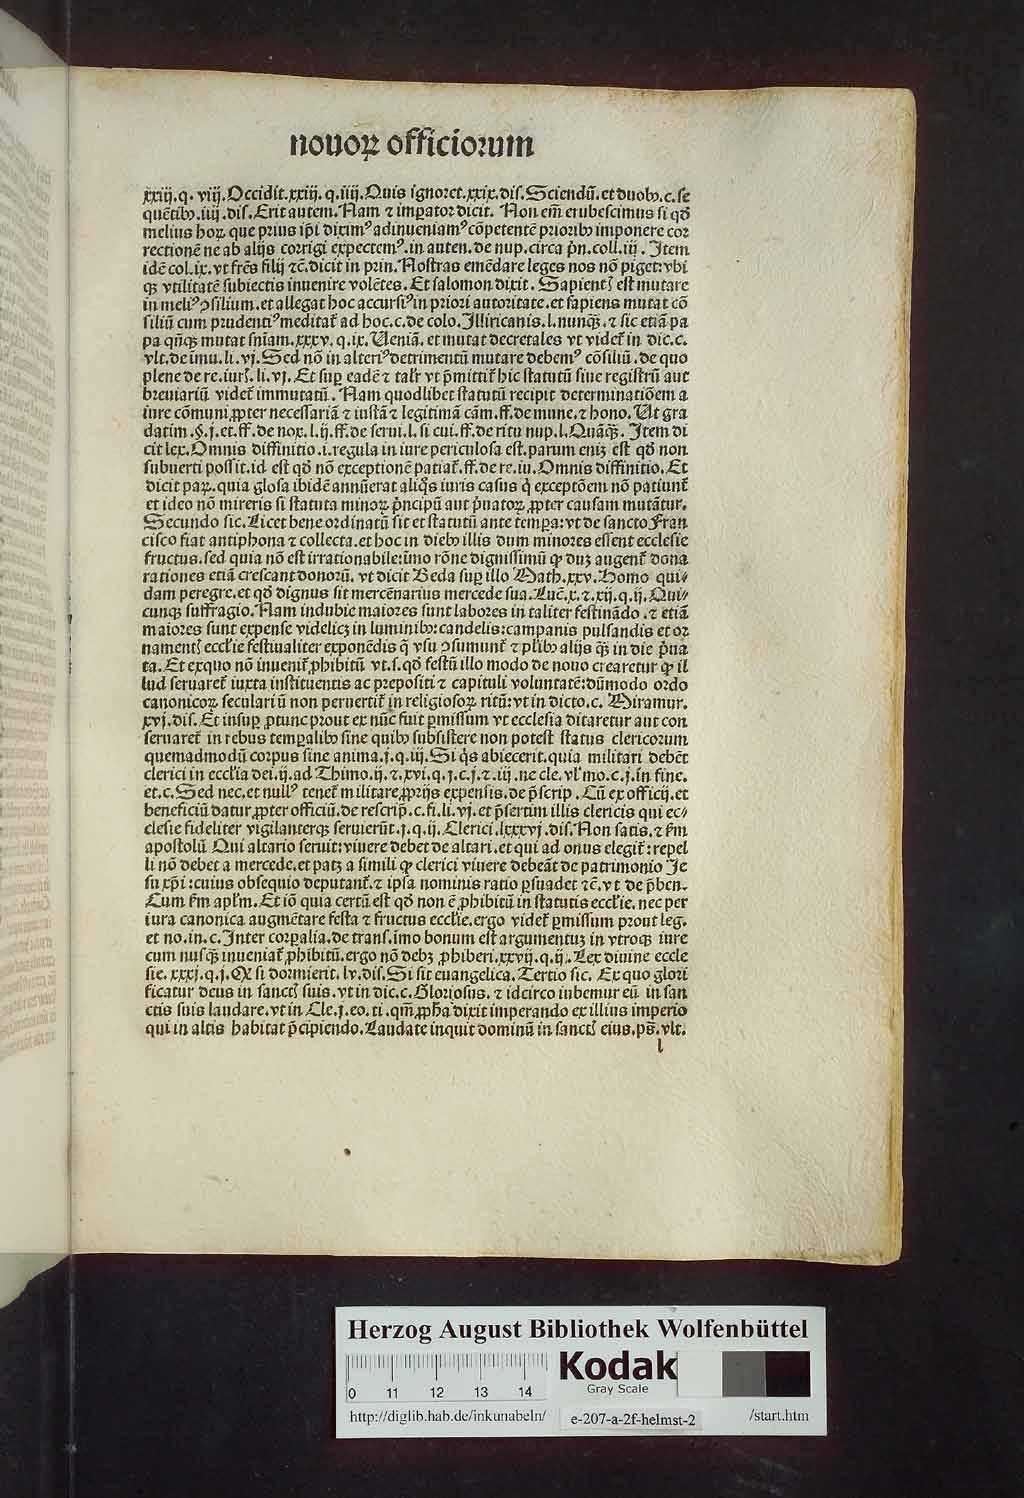 nouoꝝ officiorum
xxiij.q. viij.Occidit.xxiij.q.iiij.Quis ignoret.xxix.dis.Sciendū.et duobꝰ.c.se
quētibꝰ.iiij.dis.Erit autem.Nam ⁊ imꝑator dicit. Non em̄ erubescimus si qd̓
melius hoꝝ que prius ip̄i diximꝰ adinueniamꝰ cōpetentē prioribꝰ imponere cor
rectionē ne ab alijs corrigi expectemꝰ.in auten.de nup.circa p̄n.coll.iij. Item
idē col.ix.vt frēs filij ⁊c̄.dicit in prin.Nostras emēdare leges nos nō piget:vbi
qꝫ vtilitatē subiectis inuenire volētes. Et salomon dixit. Sapientꝭ est mutare
in meliꝰ ꝯsilium.et allegat hoc accursiꝰ in priori autoritate.et sapiens mutat cō
siliū cum prudentiꝰ meditat̄ ad hoc.c.de colo.Illiricanis.l.nunqꝫ.⁊ sic etiā pa
pa qn̄qꝫ mutat sn̄iam.xxxv.q.ix.Ueniā.et mutat decretales vt videt̄ in dic.c.
vlt.de īmu.li.vj.Sed nō in alteriꝰ detrimentū mutare debemꝰ cōsiliū.de quo
plene de re.iurꝭ.li.vj.Et suꝑ eadē ⁊ talr̄ vt p̄mittit̄ hic statutū siue registrū aut
breuiariū videt̄ immutatū. Nam quodlibet statutū recipit determinatiōem a
iure cōmuni ꝓpter necessariā ⁊ iustā ⁊ legitimā cām.ff.de mune.⁊ hono. Ut gra
datim.§.j.et.ff.de nox.l.ij.ff.de serui.l.si cui.ff.de ritu nup.l.Quāqꝫ. Item di
cit lex.Omnis diffinitio.i.regula in iure periculosa est.parum eniꝫ est qd̓ non
subuerti possit.id est qd̓ nō exceptionē patiat̄.ff.de re.iu.Omnis diffinitio.Et
dicit paꝝ.quia glosa ibidē annūerat aliq̄s iuris casus q̄ exceptōem nō patiunt̄
et ideo nō mireris si statuta minoꝝ p̄ncipū aut p̄uatoꝝ ꝓpter causam mutātur.
Secundo sic.Licet bene ordinatū sit et statutū ante tempꝑa:vt de sancto Fran
cisco fiat antiphona ⁊ collecta.et hoc in diebꝰ illis dum minores essent ecclesie
fructus.sed quia nō est irrationabile:īmo rōne dignissimū ꝙ duꝫ augent̄ dona
rationes etiā crescant donorū. vt dicit Beda suꝑ illo Math.xxv.Homo qui⸗
dam peregre.et qd̓ dignus sit mercēnarius mercede sua.Luc̄.x.⁊.xij.q.ij.Qui⸗
cunqꝫ suffragio.Nam indubie maiores sunt labores in taliter festināndo.⁊ etiā
maiores sunt expense videlicꝫ in luminibꝰ:candelis:campanis pulsandis et or
namentꝭ eccl̄ie festiualiter exponēdis q̄ vsu ꝯsumunt̄ ⁊ pl̄ibꝰ alijs qꝫ in die p̄ua
ta.Et exquo nō inuenit̄ ꝓhibitū vt.s.qd̓ festū illo modo de nouo crearetur ꝙ il
lud seruaret̄ iuxta instituentis ac prepositi ⁊ capituli voluntatē:dūmodo ordo
canonicoꝝ seculariū non peruertit̄ in religiosoꝝ ritū:vt in dicto.c. Miramur.
xvj.dis.Et insuꝑ ꝓtunc prout ex nūc fuit ꝑmissum vt ecclesia ditaretur aut con
seruaret̄ in rebus temꝑalibꝰ sine quibꝰ subsistere non potest status clericorum
quemadmodū corpus sine anima.j.q.iij.Si q̄s abiecerit.quia militari debēt
clerici in eccl̄ia dei.ij.ad Thimo.ij.⁊.xvi.q.j.c.j.⁊.iij.ne cle.vl̓ mo.c.j.in fine.
et.c.Sed nec.et nullꝰ tenet̄ militare ꝓprijs expensis.de p̄scrip. Cū ex officij.et
beneficiū datur ꝓpter officiū.de rescrip̄.c.fi.li.vj.et p̄sertim illis clericis qui ec⸗
clesie fideliter vigilanterqꝫ seruierūt.j.q.ij.Clerici.lxxxvj.dis.Non satis.⁊ fm̄
apostolū Qui altario seruit:viuere debet de altari.et qui ad onus elegit̄:repel
li nō debet a mercede.et patꝫ a simili ꝙ clerici viuere debeāt de patrimonio Je
su xp̄i:cuius obsequio deputant̄.⁊ ipsa nominis ratio ꝑsuadet ⁊c̄.vt de p̄ben.
Cum fm̄ apl̄m.Et iō quia certū est qd̓ non ē ꝓhibitū in statutis eccl̄ie.nec per
iura canonica augmētare festa ⁊ fructus eccl̄ie.ergo videt̄ ꝑmissum prout leg.
et no.in.c.Inter corꝑalia.de trans.īmo bonum est argumentuꝫ in vtroqꝫ iure
cum nusqꝫ inueniat̄ ꝓhibitū.ergo nō debꝫ ꝓhiberi.xxvij.q.ij.Lex diuine eccle
sie.xxxj.q.j.Qꝫ si dormierit.lv.dis.Si sit euangelica.Tertio sic. Ex quo glori
ficatur deus in sanctꝭ suis.vt in dic.c.Gloriosus.⁊ idcirco iubemur eū in san
ctis suis laudare.vt in Cle.j.eo.ti.qm̄ ꝓph̄a dixit imperando ex illius imperio
qui in altis habitat p̄cipiendo.Laudate inquit dominū in sanctꝭ eius.ps̄.vlt.
l
Herzog August Bibliothek Wolfenbüttel
0 11 12 13 14
Kodak
Gray Scale
http://diglib.hab.de/inkunabeln/ e-207-a-2f-helmst-2 /start.htm